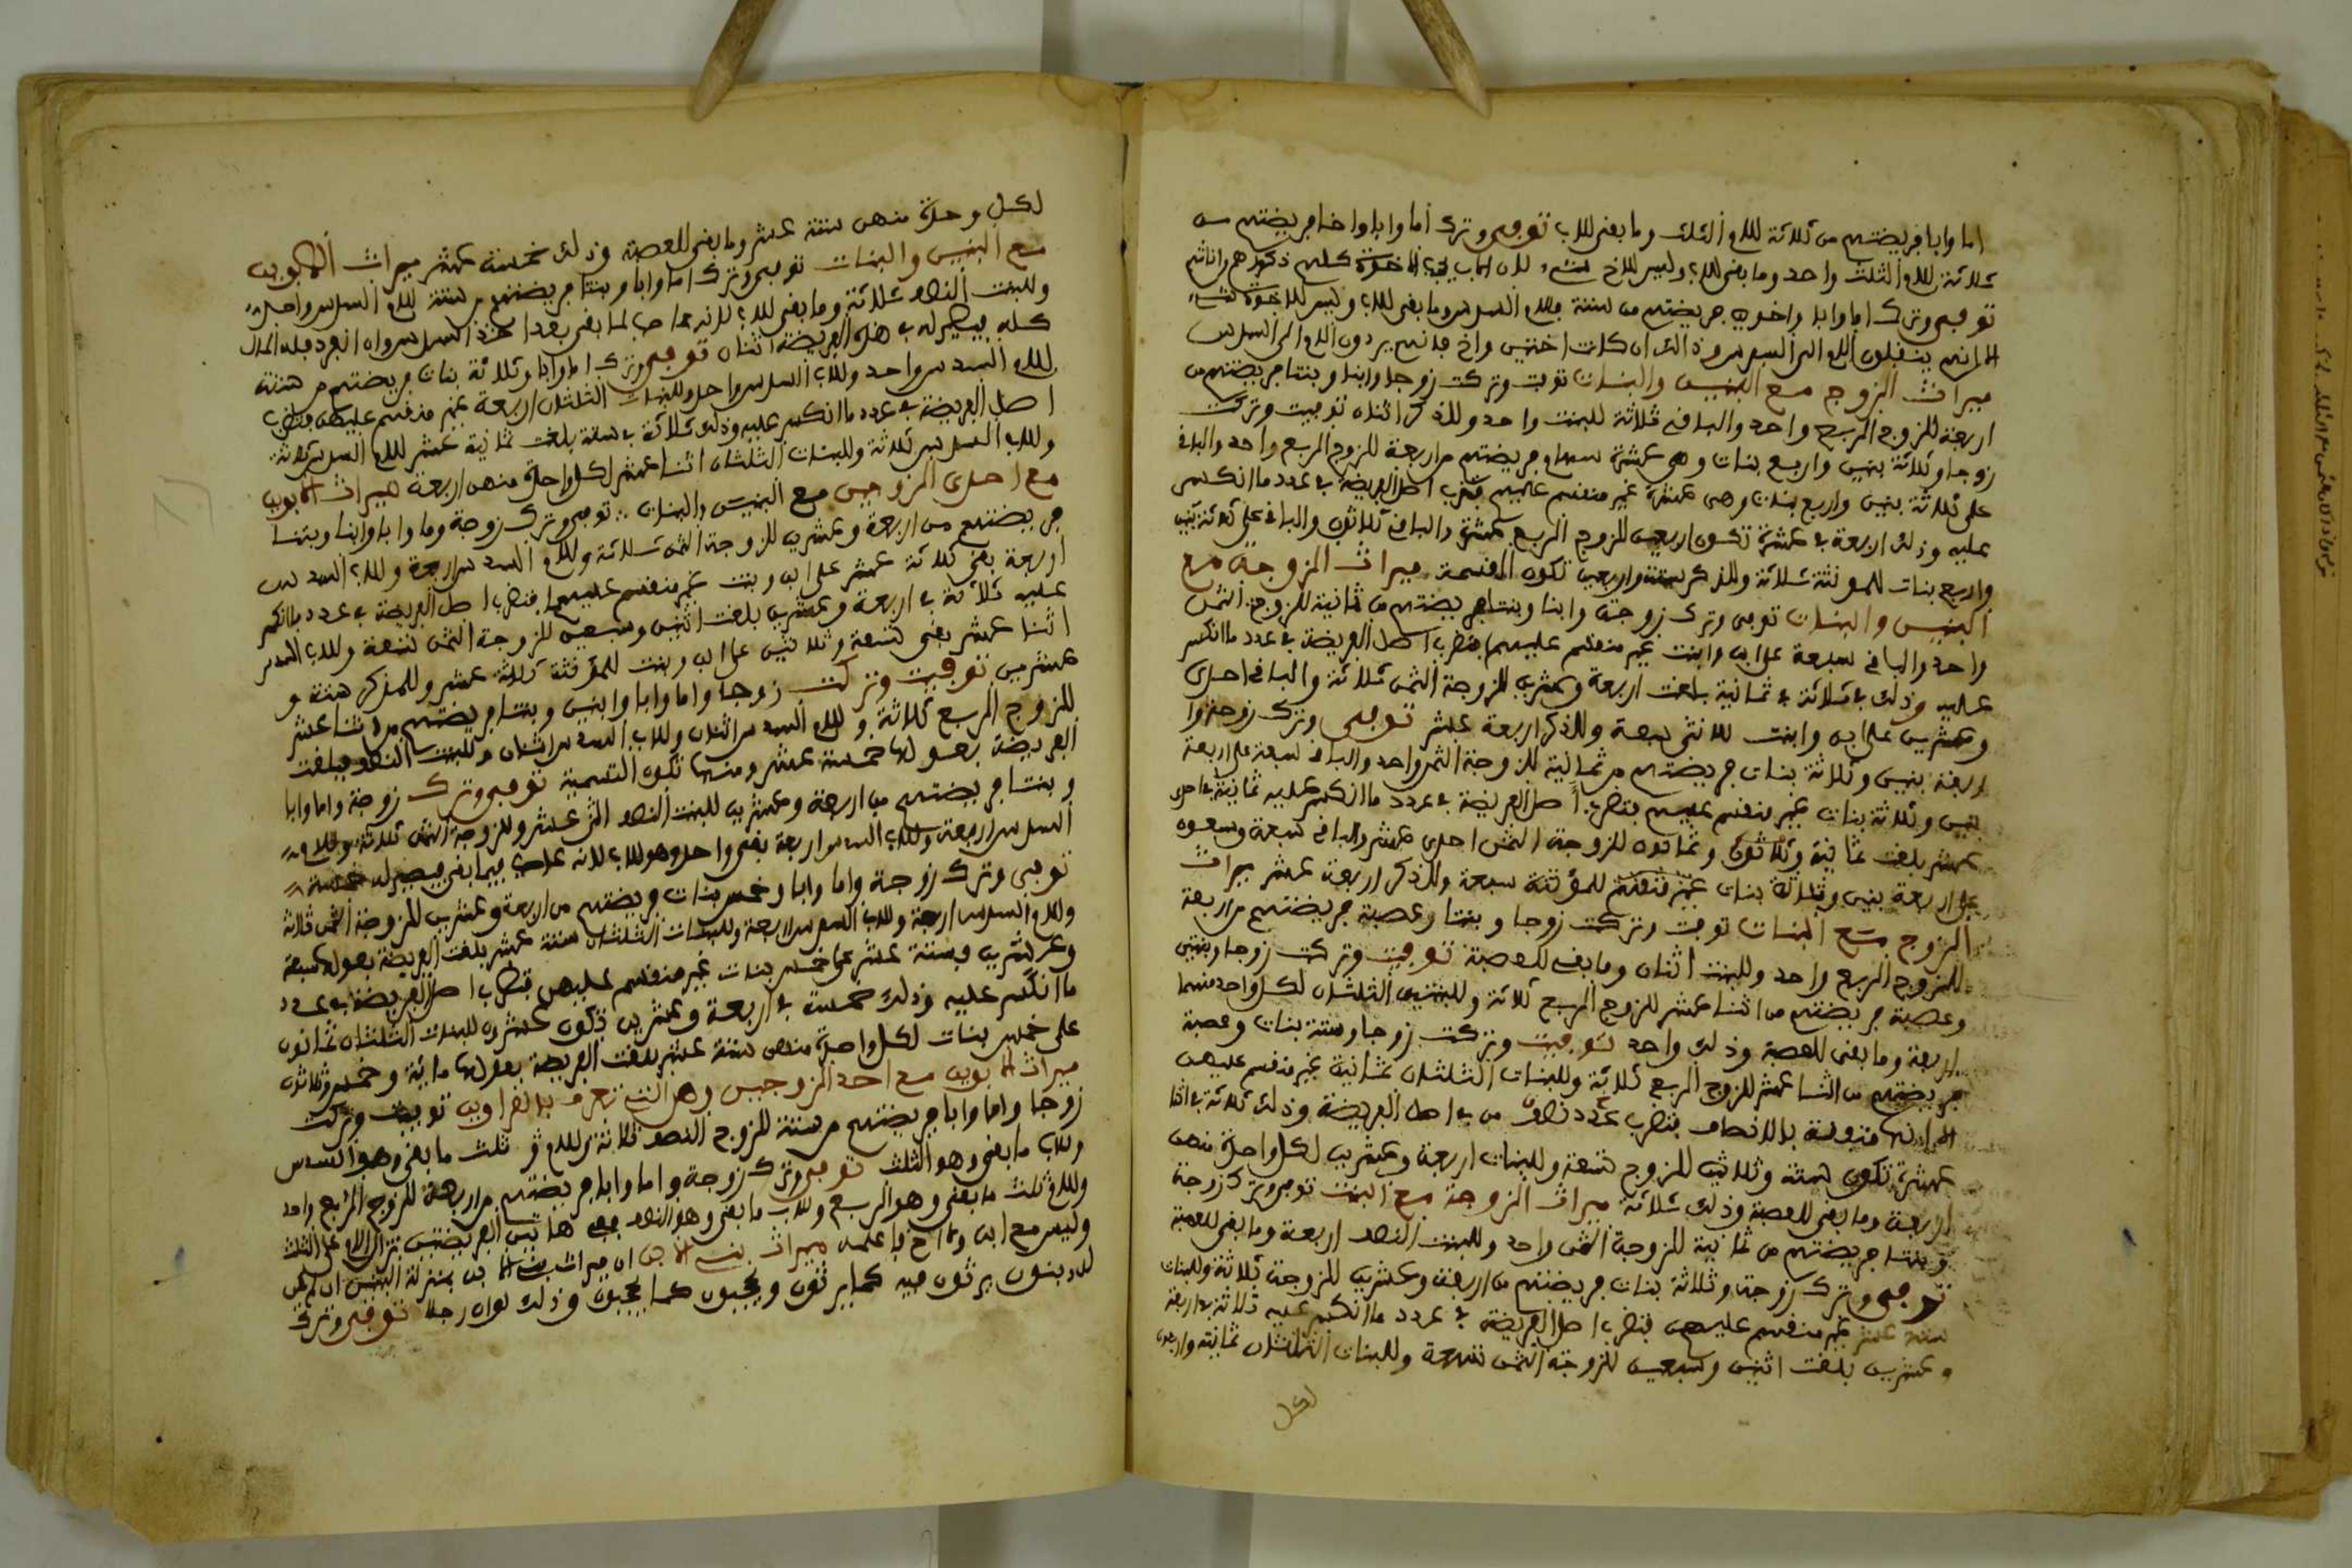 اما وابا فريضتهم من ثلاثة للام الثلث وما بقي للاب توفي وترك اما وابا واخا فريضتهم من
ثلاثة للام الثلث واحد وما بقي للاب وليس للاخ شيء لان الاب يحجب الاخوة كلهم ذكورهم واناثهم
توفي وترك اما وابا واخوين فريضتهم من ستة فللام السدس وما بقي للاب وليس للاخوة شيء
الا انهم ينقلون الام الى السدس وذالك ان كانت اختين واخ فانهم يردون الام الى السدس
ميراث الزوج مع البنين والبنات توفيت وتركت زوجا وابنا وبنتا فريضتهم من
اربعة للزوج الربع واحد والباقي ثلاثة للبنت واحد وللذكر اثنان توفيت وتركت
زوجا وثلاثة بنين واربع بنات وهي عشرة سهام فريضتهم من اربعة للزوج الربع واحد والباقي
على ثلاثة بنين واربع بنات وهي عشرة غير منقسم عليهم فتضرب اصل الفريضة في عدد ما انكسر
عليه وذلك اربعة في عشرة تكون اربعين للزوج الربع عشرة والباقي ثلاثون والباقي على ثلاثة بنين
واربع بنات للمونثة ثلاثة وللذكر ستة واربعين تكون القسمة ميراث الزوجة مع
البنين والبنات توفي وترك زوجة وابنا وبنتا فريضتهم من ثمانية للزوجة الثمن
واحد والباقي سبعة على ابن وابنت غير منقسم عليهما فتضرب اصل الفريضة في عدد ما انكسر
عليه وذلك ثلاثة في ثمانية بلغت اربعة وعشرين للزوجة الثمن ثلاثة والباقي احدى
وعشرين على ابن وابنت للانثى سبعة وللذكر اربعة عشر توفي وترك زوجة و
اربعة بنين وثلاثة بنات فريضتهم من ثمانية للزوجة الثمن واحد والباقي سبعة على اربعة
بنين وثلاثة بنات غير منقسم عليهم فتضرب اصل الفريضة في عدد ما انكسر عليه ثمانية في احدى
عشر بلغت ثمانية وثمانون للزوجة الثمن احدى عشر والباقي سبعة وسبعون
على اربعة بنين وثلاثة بنات غير منقسم للمؤنثة سبعة وللذكر اربعة عشر ميراث
الزوج مع البنات توفيت وتركت زوجا وبنتا وعصبة فريضتهم من اربعة
للزوج الربع واحد وللبنت اثنان وما بقي للعصبة توفيت وتركت زوجا وبنتين
وعصبة فريضتهم من اثنا عشر للزوج الربع ثلاثة وللبنتين الثلثان لكل واحد منهما
اربعة وما بقي للعصبة وذلك واحد توفيت وتركت زوجا وستة بنات وعصبة
فريضتهم من اثنا عشر للزوج الربع ثلاثة وللبنات الثلثان ثمانية غير منقسم عليهن
الا انها متوفقة بالانصاف فتضرب عدد نصفهن في اصل الفريضة وذلك ثلاثة في اثنا
عشرة تكون ستة وثلاثين للزوج تسعة وللبنات اربعة وعشرين لكل واحدة منهن
اربعة وما بقي للعصبة وذلك ثلاثة ميراث الزوجة مع البنت توفي وترك زوجة
وبنتا فريضتهم من ثمانية للزوجة الثمن واحد وللبنت النصف اربعة وما بقي للعصبة
توفي وترك زوجة وثلاثة بنات فريضتهم من اربعة وعشرين للزوجة ثلاثة وللبنات
ستة عشر غير منقسم عليهن فتضرب اصل الفريضة في عدد ما انكسر عليه ثلاثة في اربعة
وعشرين بلغت اثنين وسبعين للزوجة الثمن تسعة وللبنات الثلثان ثمانية واربعون
لكل
لكل وحدة منهن ستة عشر وما بقي للعصبة وذلك خمسة عشر ميراث الابوين
مع البنين والبنات توفي وترك اما وابا وبنتا فريضتهم من ستة للام السدس واحد
وللبنت النصف ثلاثة وما بقي للاب لانه عاصب لما بقي بعد اخذ السدس وان انفرد فله المال
كله فيصير له في هذه الفريضة اثنان توفي وترك اما وابا وثلاثة بنات فريضتهم من ستة
للام السدس واحد وللاب السدس واحد وللبنات الثلثان اربعة غير منقسم عليهن فتضرب
اصل الفريضة في عدد ما انكسر عليه وذلك ثلاثة في ستة بلغت ثمانية عشر للام السدس ثلاثة
وللاب السدس ثلاثة وللبنات الثلثان اثنا عشر لكل واحدة منهن اربعة ميراث الابوين
مع احدى الزوجين مع البنين والبنات توفي وترك زوجة واما وابا وابنا وبنتا
فريضتهم من اربعة وعشرين للزوجة الثمن ثلاثة وللام السدس اربعة وللاب السدس
اربعة بقي ثلاثة عشر على ابن وبنت غير منقسم عليهما فتضرب اصل الفريضة في عدد ما انكسر
عليه ثلاثة في اربعة وعشرين بلغت اثنين وسبعين للزوجة الثمن تسعة وللاب السدس
اثنا عشر بقي تسعة وثلاثين على ابن وبنت للمؤنثة ثلاثة عشر وللمذكر ستة و
عشرين توفيت وتركت زوجا واما وابا وابنين وبنتا فريضتهم من اثنا عشر
للزوج الربع ثلاثة وللام السدس اثنان وللاب السدس اثنان وللبنت النصف فبلغت
الفريضة بعولها خمسة عشر ومنها تكون القسمة توفي وترك زوجة واما وابا
وبنتا فريضتهم من اربعة وعشرين للبنت النصف اثني عشر وللزوجة الثمن ثلاثة وللام
السدس اربعة وللاب السدس اربعة بقي واحد وهو للاب لانه عاصب فيما بقي فيصير له خمسة
توفي وترك زوجة واما وابا وخمس بنات فريضتهم من اربعة وعشرين للزوجة الثمن ثلاثة
وللام السدس اربعة وللاب السدس اربعة وللبنات الثلثان ستة عشر بلغت الفريضة بعولها سبعة
وعشرين وستة عشر على خمس بنات غير منقسم عليهن فتضرب اصل الفريضة في عدد
ما انكسر عليه وذلك خمسة في اربعة وعشرين تكون عشرون للبنات الثلثان ثمانون
على خمس بنات لكل واحدة منهن ستة عشر بلغت الفريضة بعولها مائة وخمس وثلاثون
ميراث الابوين مع احد الزوجين وهي التي تعرف بالغراوين توفيت وتركت
زوجا واما وابا فريضتهم من ستة للزوج النصف ثلاثة وللام ثلث ما بقي وهو السدس
وللاب ما بقي وهو الثلث توفي وترك زوجة واما وابا فريضتهم من اربعة للزوج الربع واحد
وللام ثلث ما بقي وهو الربع وللاب ما بقي وهو النصف ففي هاتين الفريضتين تزال الام عن الثلث
وليس مع ابن ولا اخ فاعلمه ميراث بنت الابن ان ميراث بنت الابن بمنزلة البنين ان لم يكن
له بنون يرثون فيه كما يرثون ويحجبون كما يحجبون وذلك لو ان رجلا توفي وترك